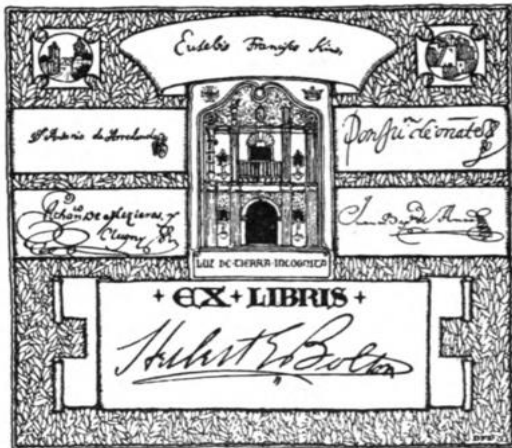 Eusebio Franco Kino,
Dn Antonio de Arredondo
Don Ju.n de oñate
Athanasio de Mezieres, y
Clugny
Juan Bap.ta de Anza
LUZ DE TIERRA INCOGNITA
+ EX + LIBRIS +
Herbert E Bolton